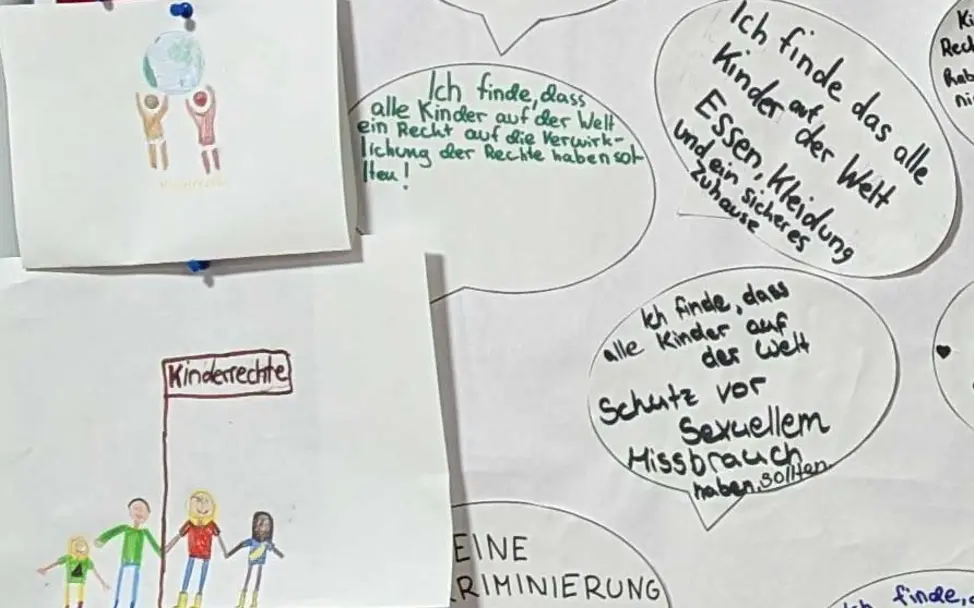 Ich finde, dass
alle Kinder auf der Welt
ein Recht auf die Verwirk-
lichung der Rechte haben sol-
lten!
Ich finde das alle
Kinder auf der Welt
Essen, Kleidung
und ein sicheres
Zuhause
Ki
Rech
hab
ni
Kinderrechte
Ich finde, dass
alle Kinder auf
der Welt
Schutz vor
Sexuellem
Missbrauch
haben sollten.
EINE
KRIMINIERUNG
Ich finde,